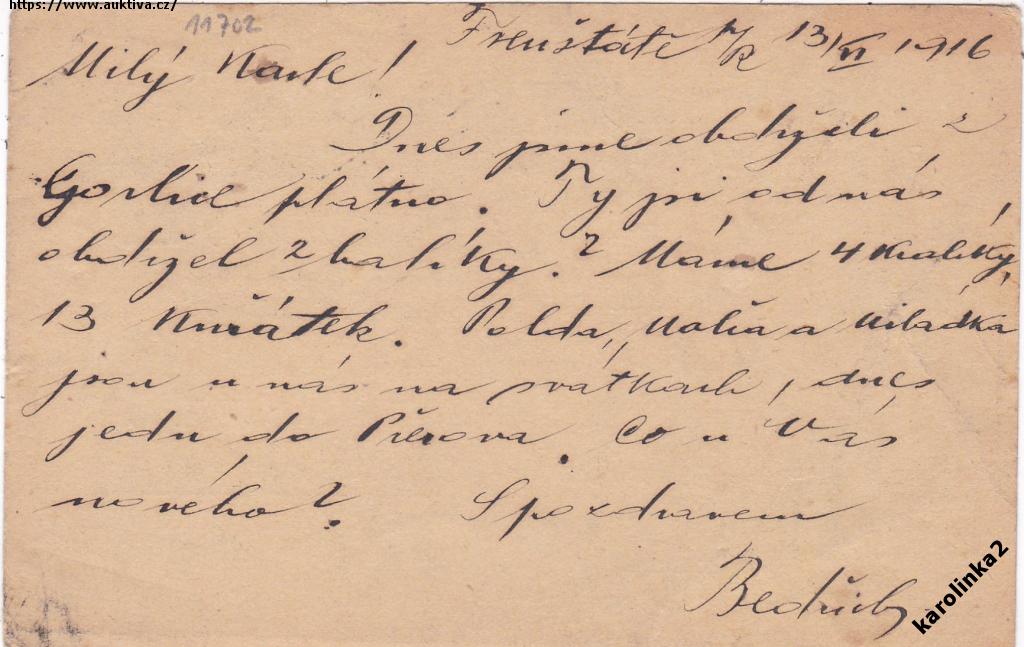 https://www.auktiva.cz/
11702
Frenštátě p/R 13/VI 1916
Milý Karle!
Dnes jsme obdrželi z
Gorlic plátno. Ty jsi od nás
obdržel 2 balíky? Máme 4 králíky,
13 kuřátek. Polda, a Miládka
jsou u nás na svátkach, dnes
jedu do Přerova. Co u Vás
nového? S pozdravem
Bedřich
karolinka2